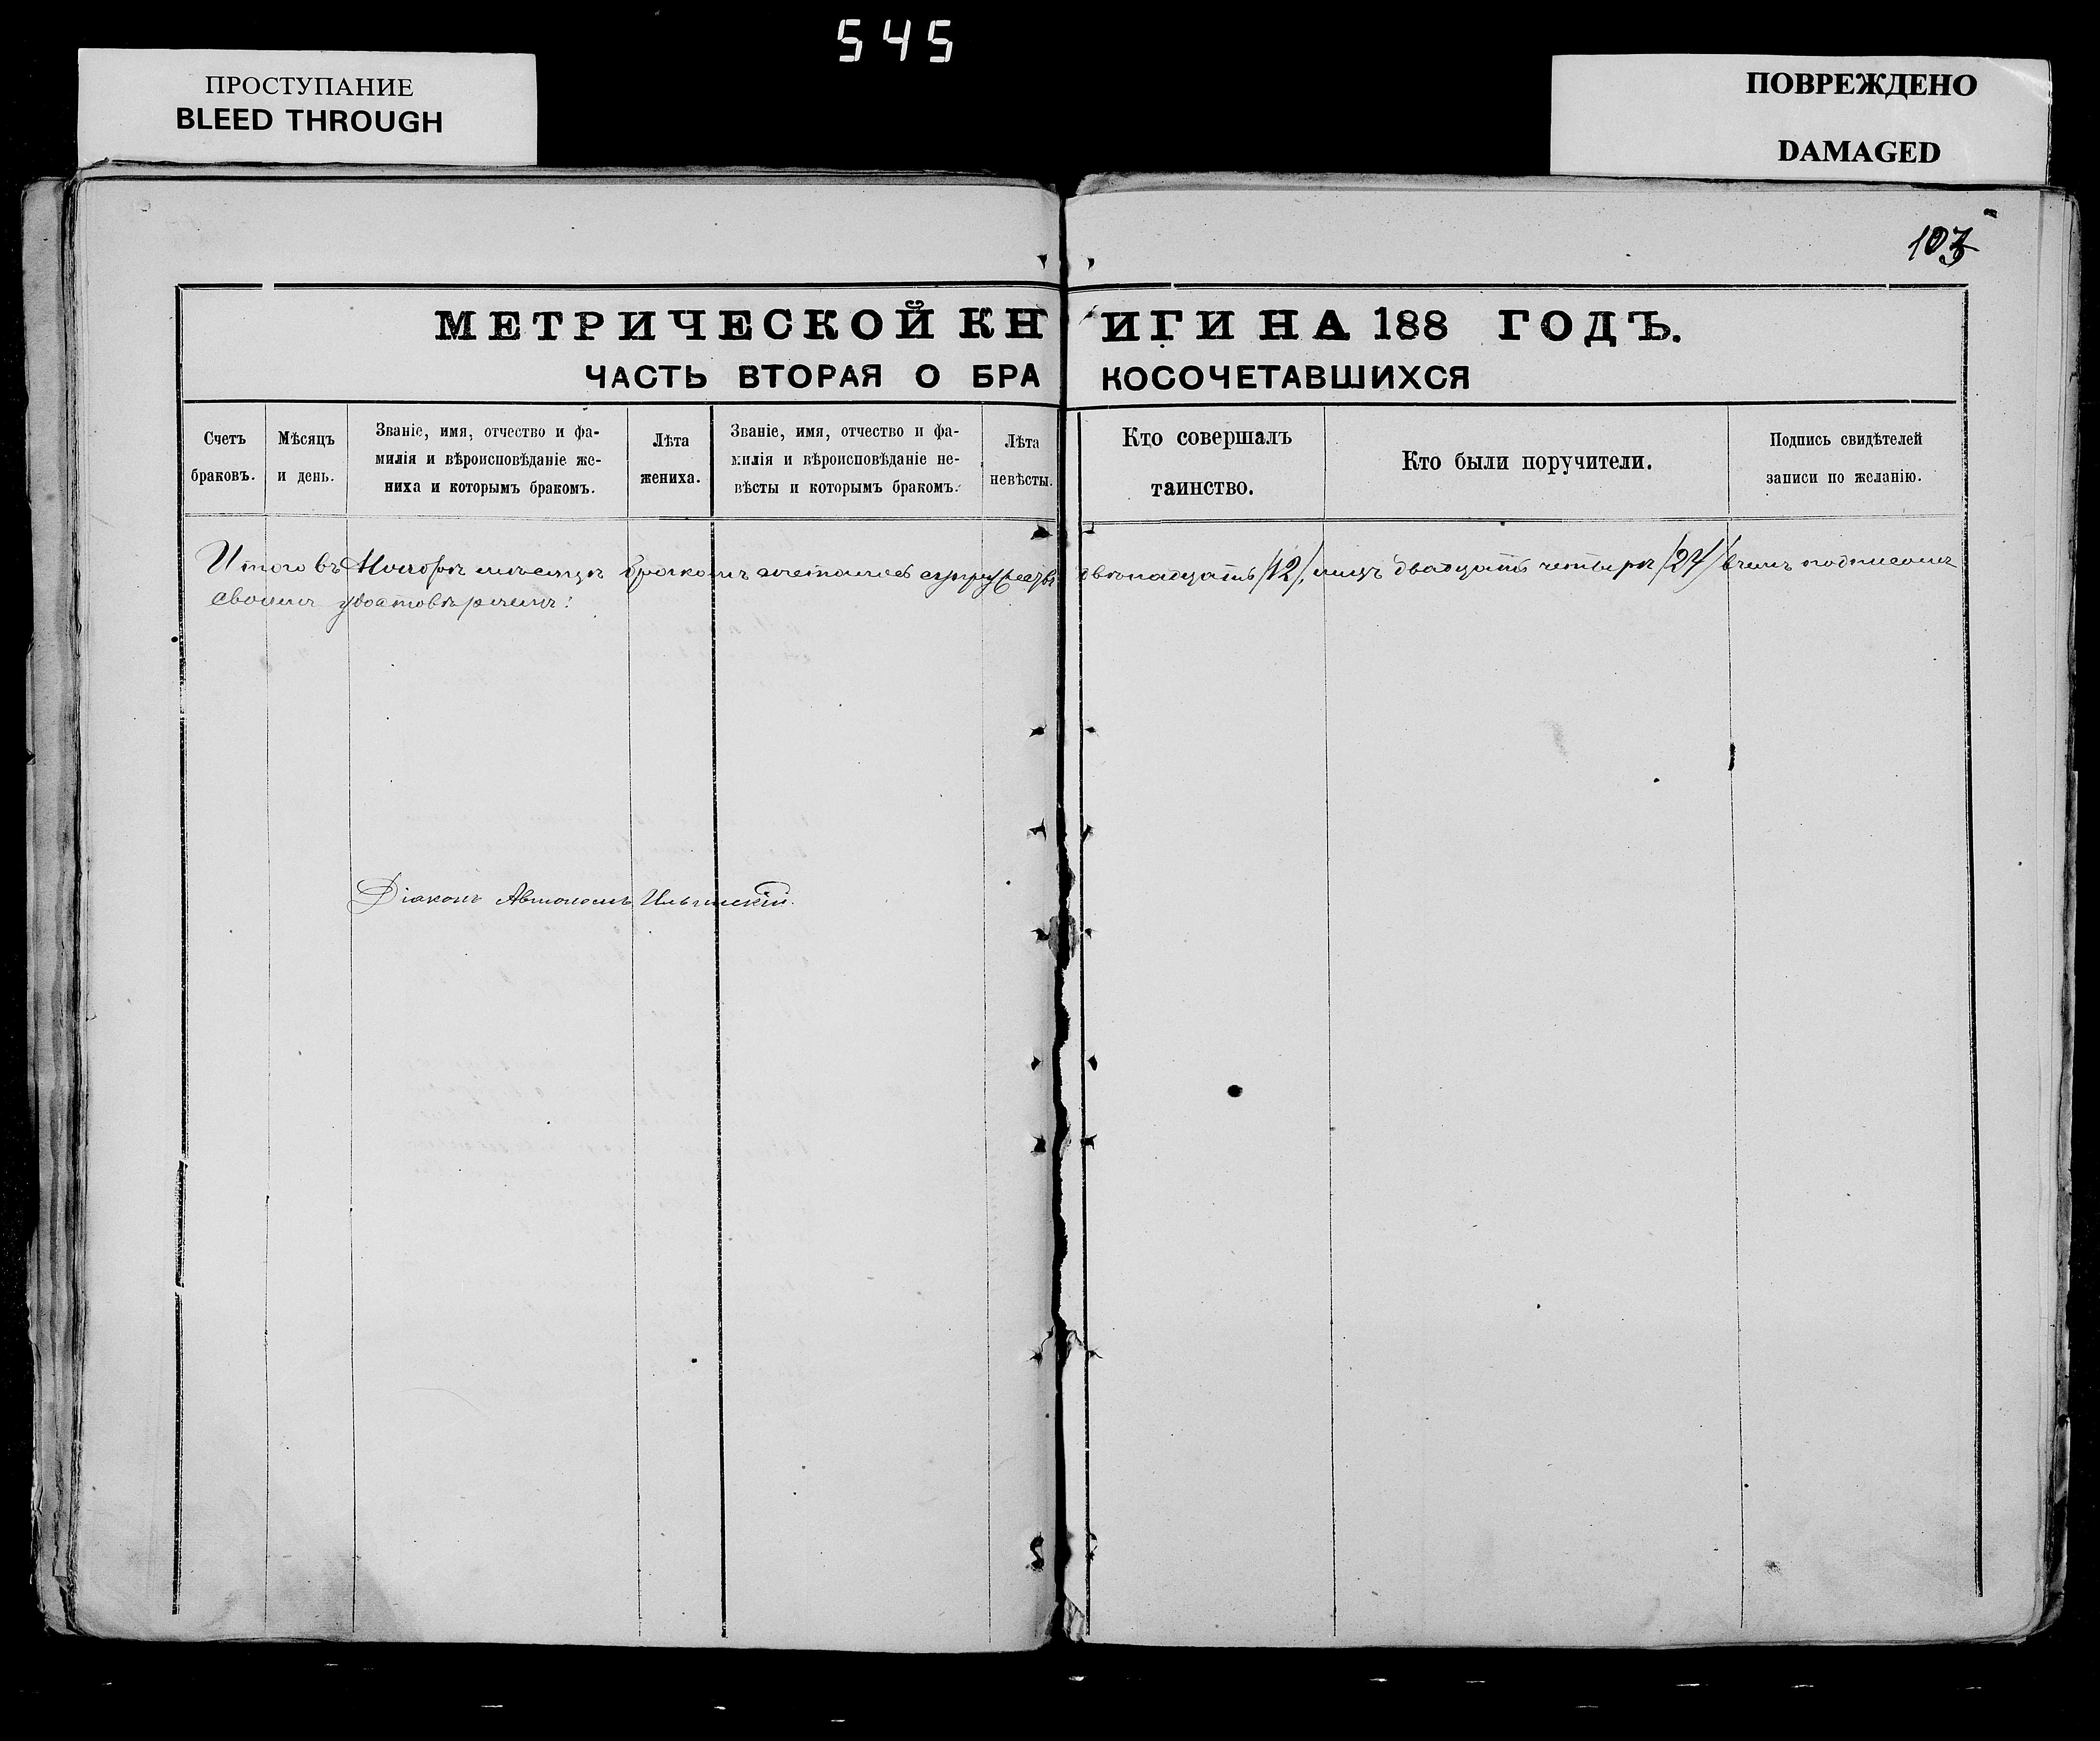 545
ПРОСТУПАНИЕ
BLEED THROUGH
ПОВРЕЖДЕНО
DAMAGED
103
МЕТРИЧЕСКОЙ КНИГИ НА 188 ГОДЪ.
ЧАСТЬ ВТОРАЯ О БРАКОСОЧЕТАВШИХСЯ
Счетъ
браковъ.
Мѣсяцъ
и день.
Званіе, имя, отчество и фа-
милія и вѣроисповѣданіе же-
ниха и которымъ бракомъ.
Лѣта
жениха.
Званіе, имя, отчество и фа-
милія и вѣроисповѣданіе не-
вѣсты и которымъ бракомъ.
Лѣта
невѣсты.
Кто совершалъ
таинство.
Кто были поручители.
Подпись свидѣтелей
записи по желанію.
Итого въ Ноябрѣ мѣсяцѣ бракомъ сочеталось супружествъ двѣнадцать /12/, лицъ двадцать четыре /24/ в чемъ подписомъ
своимъ удостовѣряемъ:
Діаконъ Автономъ Ильинскій.